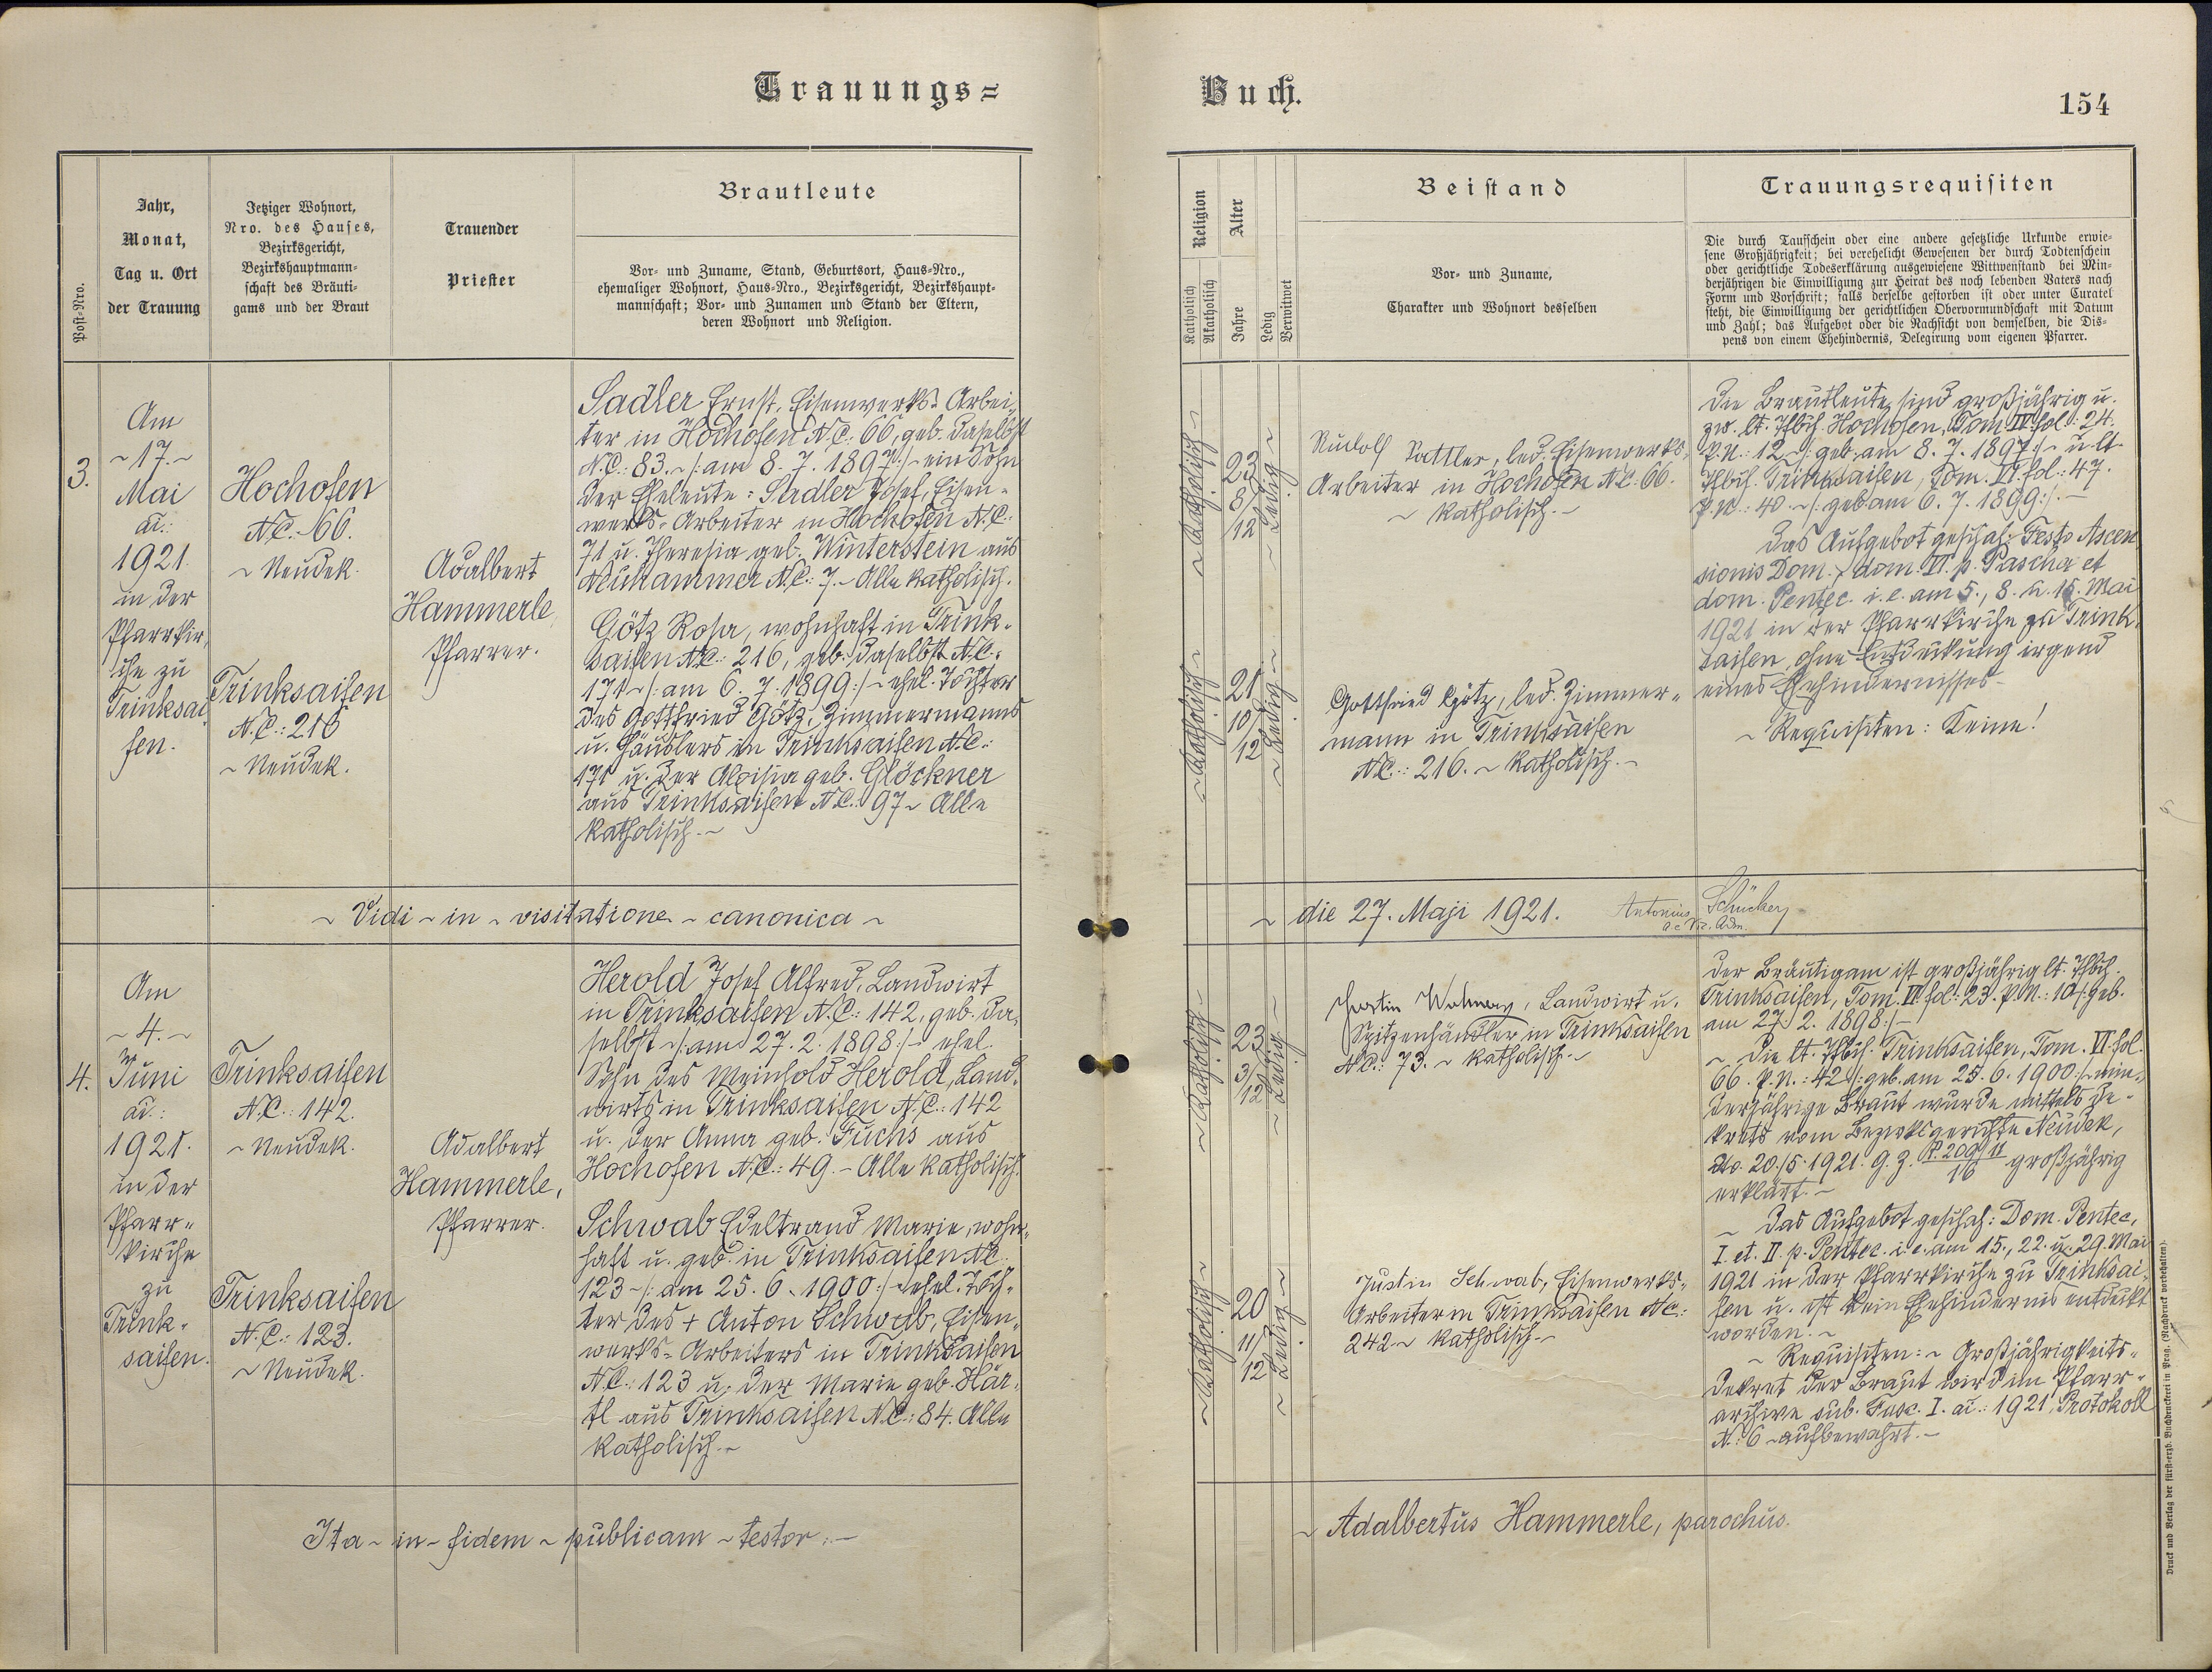 Trauungs=
Buch.
154
Post-Nro.
Jahr,
Monat,
Tag u. Ort
der Trauung
Jetziger Wohnort,
Nro. des Hauses,
Bezirksgericht,
Bezirkshauptmann-
schaft des Bräuti-
gams und der Braut
Trauender
Priester
Brautleute
Vor- und Zuname, Stand, Geburtsort, Haus-Nro.,
ehemaliger Wohnort, Haus-Nro., Bezirksgericht, Bezirkshaupt-
mannschaft; Vor- und Zunamen und Stand der Eltern,
deren Wohnort und Religion.
Religion
Katholisch
Akatholisch
Alter
Jahre
Ledig
Verwitwet
Beistand
Vor- und Zuname,
Charakter und Wohnort desselben
Trauungsrequisiten
Die durch Taufschein oder eine andere gesetzliche Urkunde erwie-
sene Großjährigkeit; bei verehelicht Gewesenen der durch Todtenschein
oder gerichtliche Todeserklärung ausgewiesene Wittwenstand bei Min-
derjährigen die Einwilligung zur Heirat des noch lebenden Vaters nach
Form und Vorschrift; falls derselbe gestorben ist oder unter Curatel
steht, die Einwilligung der gerichtlichen Obervormundschaft mit Datum
und Zahl; das Aufgebot oder die Nachsicht von demselben, die Dis-
pens von einem Ehehindernis, Delegirung vom eigenen Pfarrer.
3.
Am
~ 17. ~
Mai
ai.:
1921.
in der
Pfarrkir-
che zu
Trinksai-
fen.
Hochofen
N.C.: 66.
~ Neudek.
Trinksaifen
N.C.: 216
~ Neudek.
Adalbert
Hammerle,
Pfarrer.
Sadler Ernst, Eisenwerks-Arbei-
ter in Hochofen N.C.: 66, geb. daselbst
N.C.: 83. ~ /: am 8. 7. 1897 :/ ~ ein Sohn
der Eheleute: Sadler Josef, Eisen-
werks-Arbeiter in Hochofen N.C.:
71 u. Theresia geb. Winterstein aus
Neuhammer N.C.: 7. ~ Alle katholisch.
Götz Rosa, wohnhaft in Trink-
saifen N.C.: 216, geb. daselbst N.C.:
171 ~ /: am 6. 7. 1899 :/ ~ ehel. Tochter
des Gottfried Götz, Zimmermanns
u. Häuslers in Trinksaifen N.C.:
171 u. der Aloisia geb. Glöckner
aus Trinksaifen N.C.: 97 ~ Alle
katholisch. ~
~ Katholisch ~
23
8/
12
~ Ledig ~
~ Katholisch ~
21
10/
12
~ Ledig ~
Rudolf Sattler, led. Eisenwerks-
Arbeiter in Hochofen N.C.: 66.
~ katholisch. ~
Gottfried Götz, led. Zimmer-
mann in Trinksaifen
N.C.: 216. ~ katholisch. ~
Die Brautleute sind großjährig u.
zw. lt. Tfbch. Hochofen, Tom. III. fol.: 24.
P.N.: 12. ~ /: geb. am 8. 7. 1897 :/ ~ u. lt.
Tfbch. Trinksaifen, Tom. VI. fol.: 47.
P.N.: 40. ~ /: geb. am 6. 7. 1899 :/. ~
Das Aufgebot geschah: Festo Ascen-
sionis Dom., dom. VI. p. Pascha et
dom. Pentec. i. e. am 5., 8. u. 15. Mai
1921 in der Pfarrkirche zu Trink-
saifen, ohne Entdeckung irgend
eines Ehehindernisses.
~ Requisiten: Keine!
~ Vidi ~ in ~ visitatione ~ canonica ~
~ die 27. Maji 1921.
Antonius
4.
Am
~ 4. ~
Juni
ai.:
1921.
in der
Pfarr-
kirche
zu
Trink-
saifen.
Trinksaifen
N.C.: 142.
~ Neudek.
Trinksaifen
N.C.: 123.
~ Neudek.
Adalbert
Hammerle,
Pfarrer.
Herold Josef Alfred, Landwirt
in Trinksaifen N.C.: 142, geb. da-
selbst ~ /: am 27. 2. 1898 :/ ~ ehel.
Sohn des Meinhold Herold, Land-
wirts in Trinksaifen N.C.: 142
u. der Anna geb. Fuchs aus
Hochofen N.C.: 49. ~ Alle katholisch.
Schwab Edeltraud Marie, wohn-
haft u. geb. in Trinksaifen N.C.
123 ~ /: am 25. 6. 1900 :/ ~ ehel. Toch-
ter des + Anton Schwab, Eisen-
werks-Arbeiters in Trinksaifen
N.C.: 123 u. der Marie geb. Här-
tl aus Trinksaifen N.C.: 84. Alle
katholisch. ~
~ Katholisch ~
23
3/
12
~ Ledig ~
~ Katholisch ~
20
11/
12
~ Ledig ~
Landwirt u.
Spitzenhändler in Trinksaifen
N.C.: 73. ~ katholisch. ~
Justin Schwab, Eisenwerks-
Arbeiter in Trinksaifen N.C.:
242. ~ katholisch. ~
Der Bräutigam ist großjährig lt. Tfbch.
Trinksaifen, Tom. VI. fol.: 23. P.N.: 10 /: geb.
am 27. 2. 1898 :/ ~
~ Die lt. Tfbch. Trinksaifen, Tom. VI. fol.
66. P.N.: 42 /: geb. am 25. 6. 1900 :/ ~ min-
derjährige Braut wurde mittels De-
krets vom Bezirksgerichte Neudek,
dto. 20./5. 1921. G. Z. P. 209/11 16 großjährig
erklärt. ~
~ Das Aufgebot geschah: Dom. Pentec.,
I. et. II. p. Pentec. i. e. am 15., 22. u. 29. Mai
1921 in der Pfarrkirche zu Trinksai-
fen u. ist kein Ehehindernis entdeckt
worden. ~
~ Requisiten: ~ Großjährigkeits-
Dekret der Braut wird im Pfarr-
archive sub. Fasc. I. ai.: 1921, Protokoll
N.: 6 ~ aufbewahrt. ~
Ita ~ in ~ fidem ~ publicam ~ testor: ~
~ Adalbertus Hammerle, parochus.
Druck und Verlag der fürst-erzb. Buchdruckerei in Prag. (Nachdruck vorbehalten).